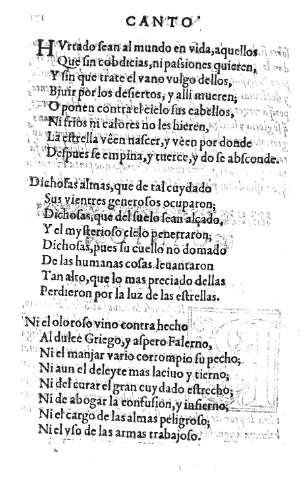 CANTO
HVrtado sean al mundo en vida, aquellos
Que sin cobdicias, ni passiones quieren,
Y sin que trate el vano vulgo dellos,
Biuir por los desiertos, y alli mueren;
Oponen contra el cielo sus cabellos,
Ni frios ni calores no les hieren,
La estrella veen nascer, y veen por donde
Despues se empina, y tuerce, y do se absconde.
Dichosas almas, que de tal cuydado
Sus vientres generosos ocuparon;
Dichosas, que del suelo sean alçado,
Y el mysterioso cielo penetraron;
Dichosas, pues su cuello no domado
De las humanas cosas leuantaron
Tan alto, que lo mas preciado dellas
Perdieron por la luz de las estrellas.
Ni el oloroso vino contra hecho
Al dulce Griego, y aspero Falerno,
Ni el manjar vario corrompio su pecho;
Ni aun el deleyte mas laciuo y tierno;
Ni del curar el gran cuydado estrecho;
Ni de abogar la confusion, y infierno;
Ni el cargo de las almas peligroso;
Ni el vso de las armas trabajoso.